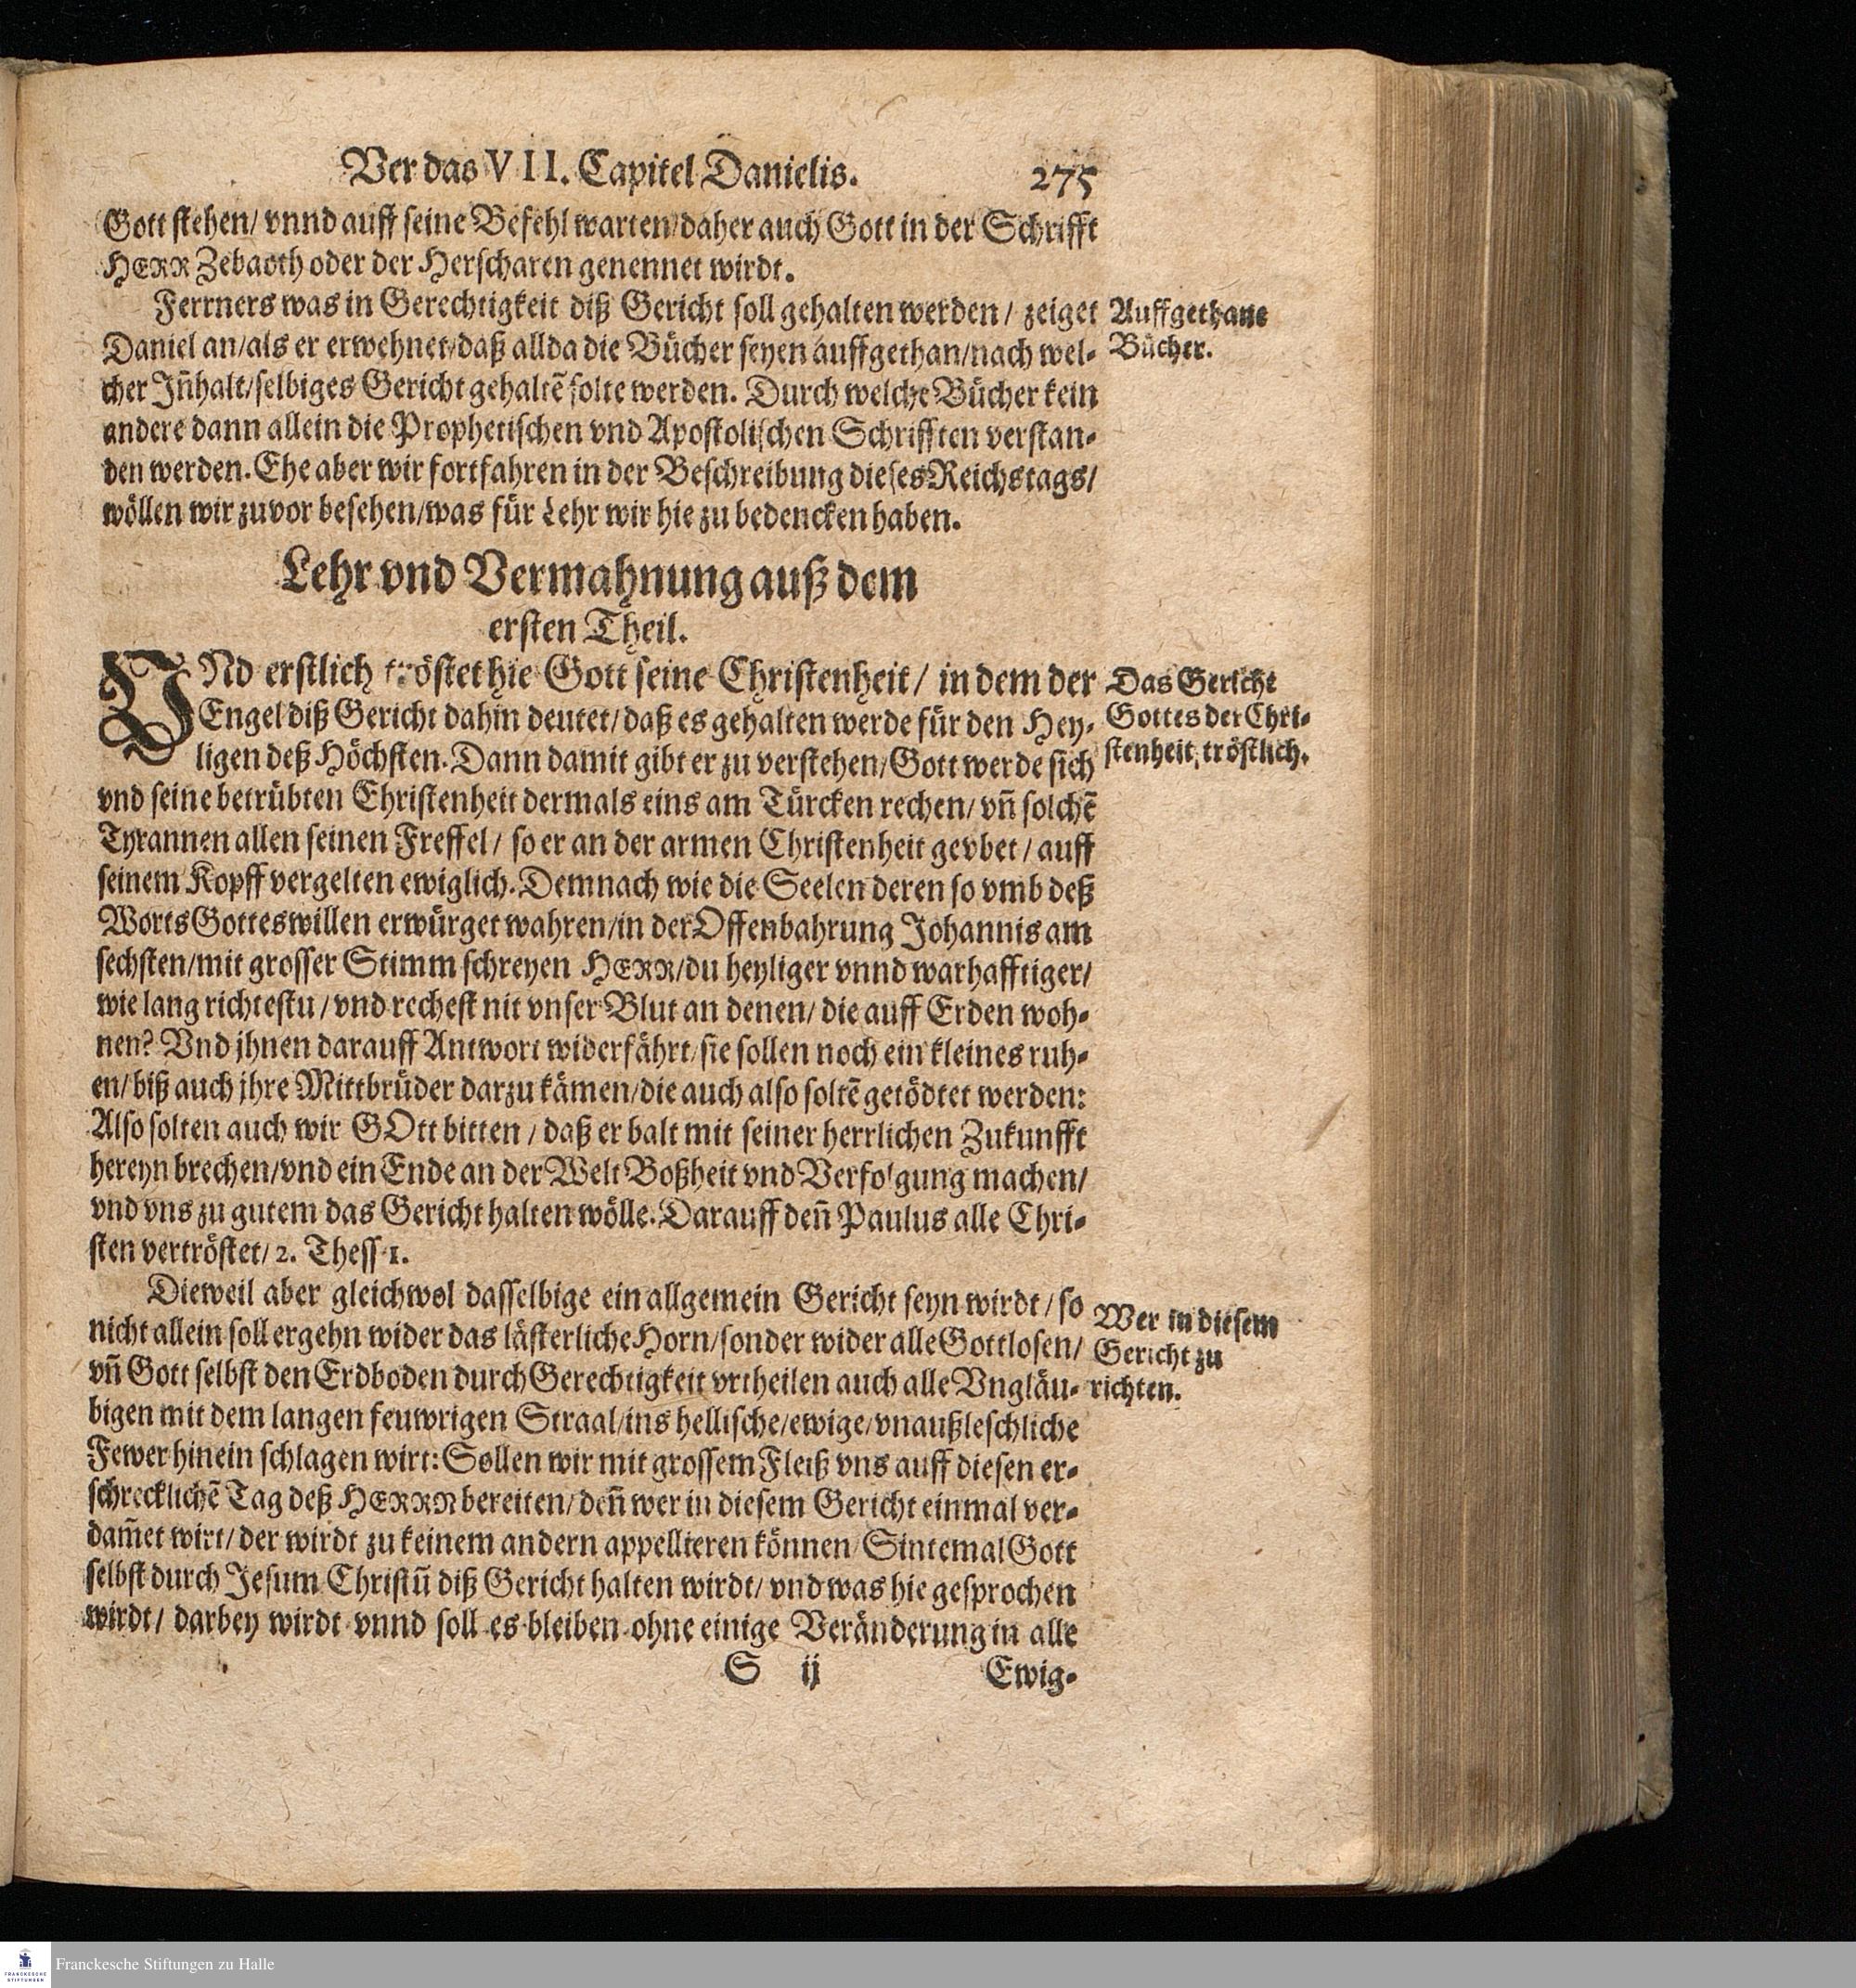 Vber das VII. Capitel Danielis. 275
Gott stehen/ vnnd auff seine Befehl warten/daher auch Gott in der Schrifft
HERR Zebaoth oder der Herscharen genennet wirdt.
Ferrners was in Gerechtigkeit diß Gericht soll gehalten werden/ zeiget
Auffgethane
Daniel an/als er erwehnet/daß allda die Bücher seyen auffgethan/nach wel-
Bücher.
cher Jñhalt/selbiges Gericht gehaltẽ solte werden. Durch welche Bücher kein
andere dann allein die Prophetischen vnd Apostolischen Schrifften verstan-
den werden. Ehe aber wir fortfahren in der Beschreibung dieses Reichstags/
wöllen wir zuvor besehen/was für Lehr wir hie zu bedencken haben.
Lehr vnd Vermahnung auß dem
ersten Theil.
VNd erstlich tröstet hie Gott seine Christenheit/ in dem der
Das Gericht
Engel diß Gericht dahin deutet/daß es gehalten werde für den Hey-
Gottes der Chri-
ligen deß Höchsten. Dann damit gibt er zu verstehen/Gott werde sich
stenheit tröstlich.
vnd seine betrübten Christenheit dermals eins am Türcken rechen/ vñ solchẽ
Tyrannen allen seinen Freffel/ so er an der armen Christenheit gevbet/ auff
seinem Kopff vergelten ewiglich. Demnach wie die Seelen deren so vmb deß
Worts Gottes willen erwürget wahren/in der Offenbahrung Johannis am
sechsten/mit grosser Stimm schreyen HERR/du heyliger vnnd warhafftiger/
wie lang richtestu/ vnd rechest nit vnser Blut an denen/ die auff Erden woh-
nen? Vnd jhnen darauff Antwort widerfährt/sie sollen noch ein kleines ruh-
en/biß auch jhre Mittbrüder darzu kämen/die auch also soltẽ getödtet werden:
Also solten auch wir GOtt bitten/ daß er balt mit seiner herrlichen Zukunfft
hereyn brechen/vnd ein Ende an der Welt Boßheit vnd Verfolgung machen/
vnd vns zu gutem das Gericht halten wölle. Darauff deñ Paulus alle Chri-
sten vertröstet/ 2. Thess 1.
Dieweil aber gleichwol dasselbige ein allgemein Gericht seyn wirdt/ so
Wer in diesem
nicht allein soll ergehn wider das lästerliche Horn/sonder wider alle Gottlosen/
Gericht zu
vñ Gott selbst den Erdboden durch Gerechtigkeit vrtheilen auch alle Vngläu-
richten.
bigen mit dem langen feuwrigen Straal/ins hellische/ewige/vnaußleschliche
Fewer hinein schlagen wirt: Sollen wir mit grossem Fleiß vns auff diesen er-
schrecklichẽ Tag deß HERRN bereiten/ deñ wer in diesem Gericht einmal ver-
dam̃et wirt/ der wirdt zu keinem andern appellieren können/ Sintemal Gott
selbst durch Jesum Christũ diß Gericht halten wirdt/ vnd was hie gesprochen
wirdt/ darbey wirdt vnnd soll es bleiben ohne einige Veränderung in alle
S ij Ewig-
Franckesche Stiftungen zu Halle
FRANCKESCHE
STIFTUNGEN